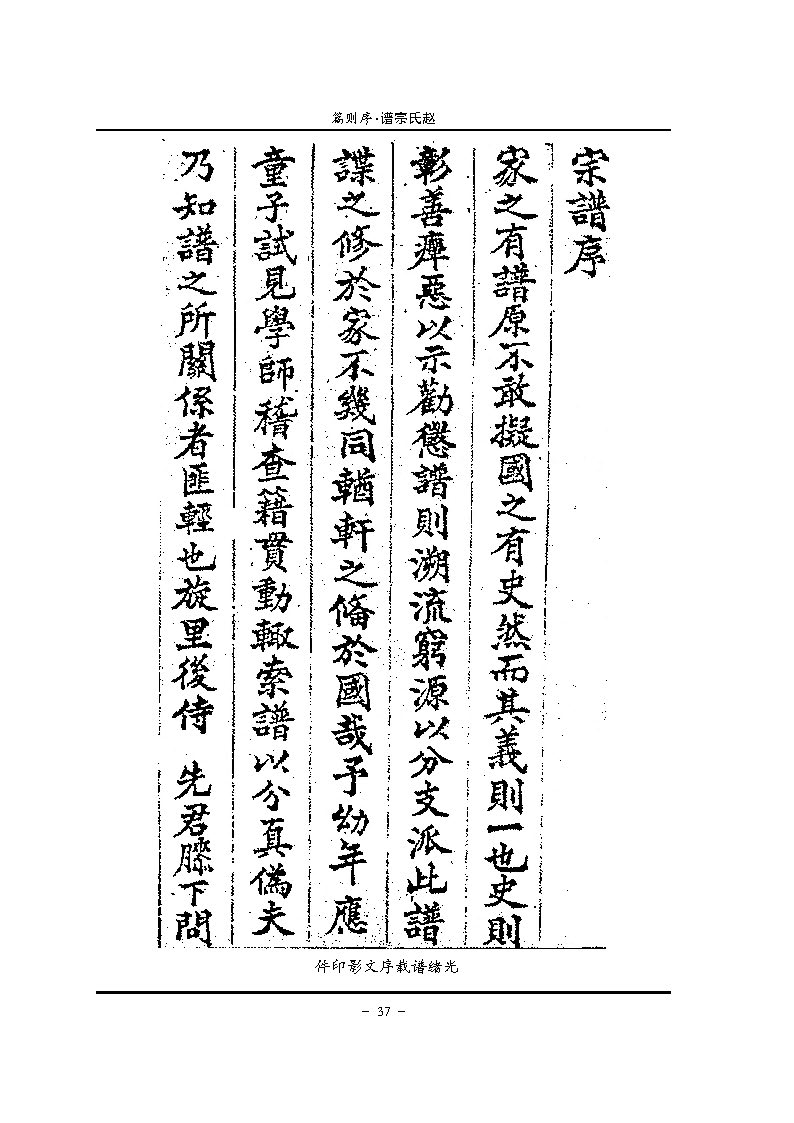 赵氏宗谱·序则篇
宗譜序
家之有譜原不敢擬國之有史然而其義則一也史則
彰善癉惡以示勸懲譜則溯流窮源以分支派此譜
諜之修於家不幾同輶軒之偹於國哉予幼年應
童子試見學師稽查籍貫動輒索譜以分真偽夫
乃知譜之所關係者匪輕也旋里後侍 先君膝下問
光绪谱载序文影印件
- 37 -